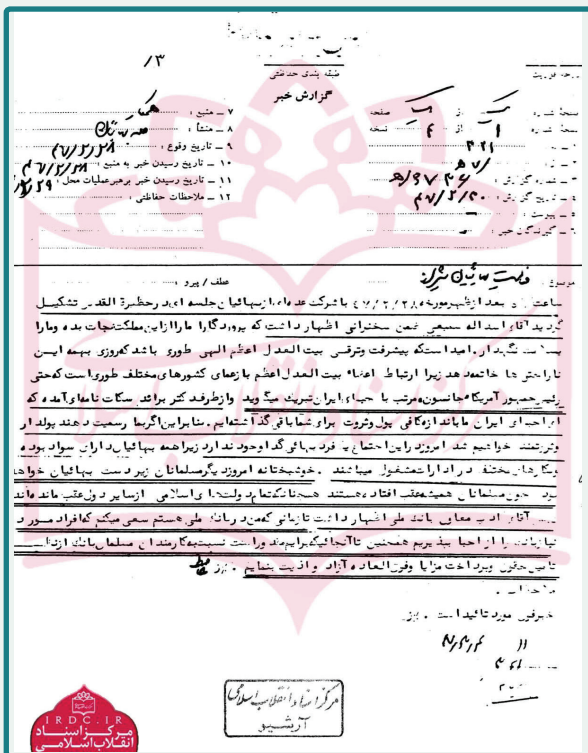 /۳
طبقه بندی حفاظتی
گزارش خبر
درجه فوریت
صفحه شماره : از صفحه
نسخه شماره : از نسخه
۵ – شماره گزارش :
۵ – تاریخ گزارش :
۶ – پیوست :
۶ – گیرندگان خبر :
۷ – منبع : همکار
۸ – منشأ :
۹ – تاریخ وقوع : ۴۷/۲/۲۸
۱۰ – تاریخ رسیدن خبر به منبع : ۴۷/۲/۲۸
۱۱ – تاریخ رسیدن خبر برهبرعملیات محل :
۱۲ – ملاحظات حفاظتی :
موضوع : فعالیت بهائیان شیراز عطف / پیرو :
ساعت بعد ازظهرمورخه ۴۷/۲/۲۸ با شرکت عده‌ای ازبهائیان جلسه ای درحظیرة القدس تشکیل
گردید آقای اسداله سمیعی ضمن سخنرانی اظهار داشت که پروردگارا ماراازاین مملکت نجات بده ومارا
نگهدار امید است که پیشرفت وترقی بیت العدل اعظم الهی طوری باشد که روزی بهمه ایـن
ناراحتی ها خاتمه دهد زیرا ارتباط اعضاء بیت العدل اعظم بازعمای کشورهای مختلف طوری است که حتی
رئیس جمهور آمریکا جانسون مرتب با احبای ایران تبریک میگوید وازطرف دکتر نامه‌ای آمده که
ای احبای ایران ما باندازه کافی پول وثروت برای شما باقی گذاشته‌ایم بنابراین اگر بما رسمیت دهند پولدار
وثروتمند خواهیم شد امروز دراین اجتماع یک فرد بهائی گدا وجود ندارد زیرا همه بهائیان دارای سواد بوده
وبکارهای مختلف درادارات مشغول میباشند . خوشبختانه امروز دیگر مسلمانان زیر دست بهائیان خواهند
بود چون مسلمانان همیشه عقب افتاده هستند همچنانکه تمام دولتهای اسلامی ازسایر دول عقب مانده‌اند
آقای ادب معاون بانک ملی اظهار داشت تا زمانی که من در بانک ملی هستم سعی میکنم که افراد مورد
نیاز بانک را از احبا بپذیریم همچنین تا آنجائیکه برایم مقدور است نسبت به کارمندان مسلمان بانک ازنظر
تأمین حقوق وپرداخت مزایا وفوق العاده آزار واذیت بنمایم .
ملاحظات .
خبرفوق مورد تائید است .
مرکز اسناد انقلاب اسلامی
آرشیو
IRDC.IR
مرکز اسناد
انقلاب اسلامی